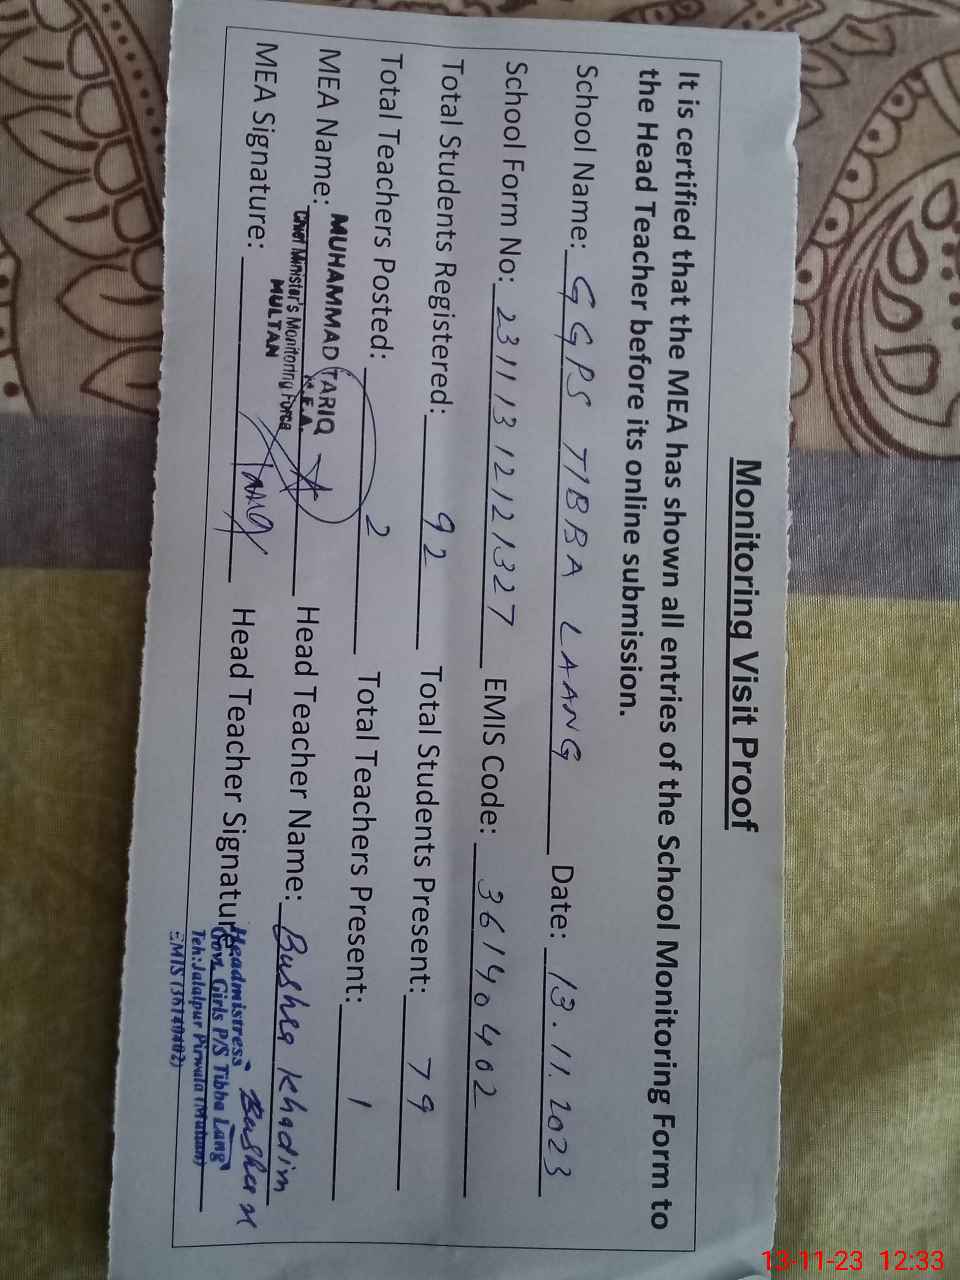 Monitoring Visit Proof
It is certified that the MEA has shown all entries of the School Monitoring Form to
the Head Teacher before its online submission.
School Name: GGPS TIBBA LAANG Date: 13.11.2023
School Form No: 23111312121327 EMIS Code: 36140402
Total Students Registered: 92 Total Students Present: 79
Total Teachers Posted: 2 Total Teachers Present: 1
MEA Name: MUHAMMAD TARIQ Head Teacher Name: Bushra Khadim
M.E.A.
Chief Minister's Monitoring Force
MULTAN
MEA Signature: Head Teacher Signature
Headmistress
Govt. Girls P/S Tibba Lang
Teh:Jalalpur Pirwala (Multan)
EMIS (36140402)
13-11-23 12:33